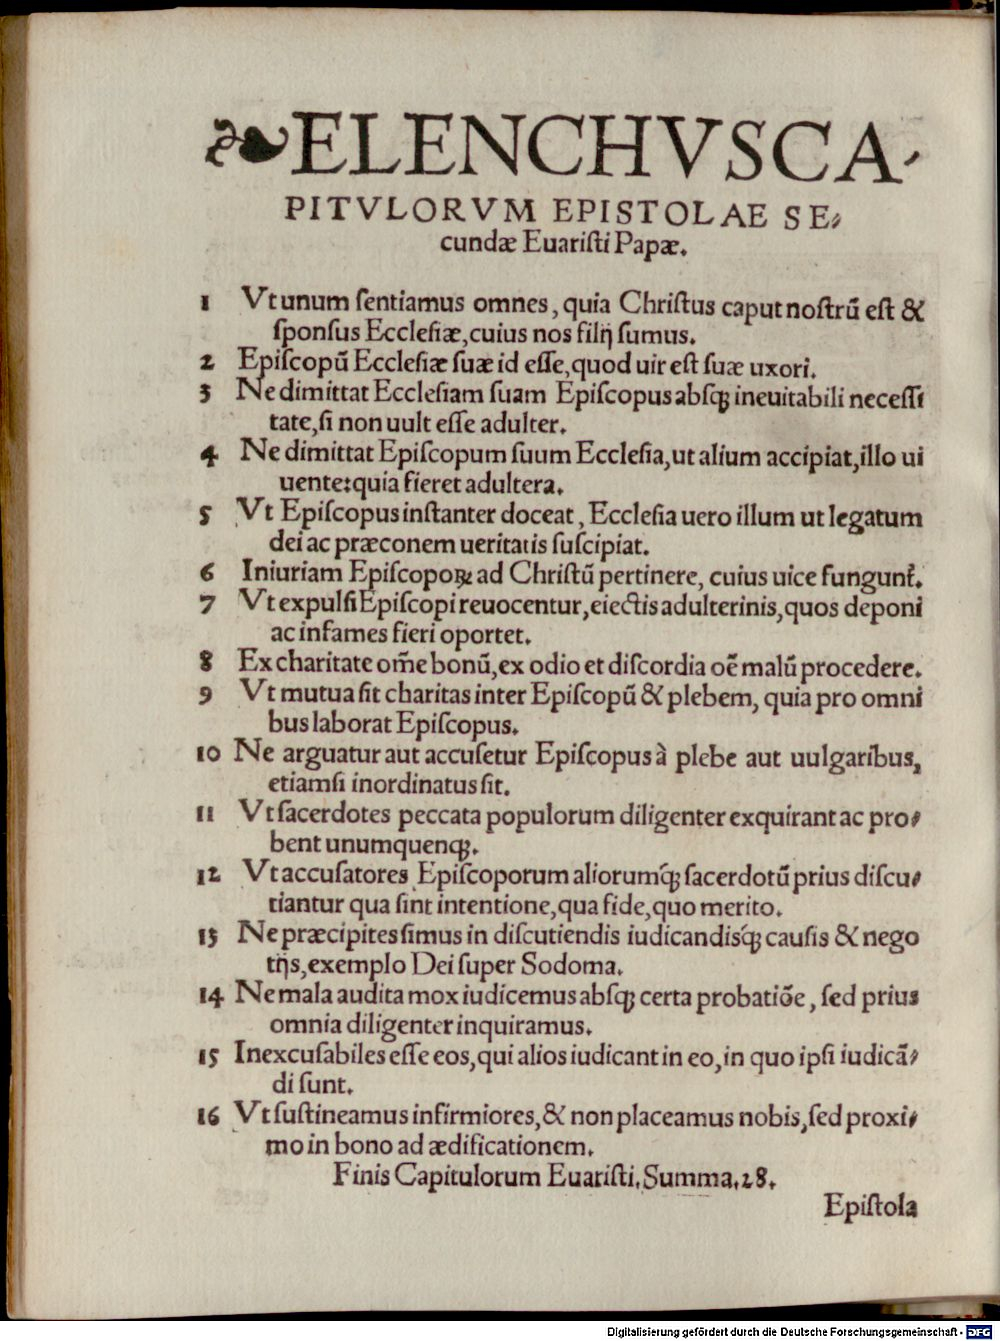 ❧ELENCHVS CA-
PITVLORVM EPISTOLAE SE-
cundæ Euariſti Papæ.
1 Vt unum ſentiamus omnes, quia Chriſtus caput noſtrũ eſt &
ſponſus Eccleſiæ, cuius nos filij ſumus.
2 Epiſcopũ Eccleſiæ ſuæ id eſſe, quod uir eſt ſuæ uxori.
3 Ne dimittat Eccleſiam ſuam Epiſcopus abſqꝫ ineuitabili neceſſi
tate, ſi non uult eſſe adulter.
4 Ne dimittat Epiſcopum ſuum Eccleſia, ut alium accipiat, illo ui
uente: quia fieret adultera.
5 Vt Epiſcopus inſtanter doceat, Eccleſia uero illum ut legatum
dei ac præconem ueritatis ſuſcipiat.
6 Iniuriam Epiſcopoꝝ ad Chriſtũ pertinere, cuius uice fungunt᷑.
7 Vt expulſi Epiſcopi reuocentur, eiectis adulterinis, quos deponi
ac infames fieri oportet.
8 Ex charitate om̃e bonũ, ex odio et diſcordia oẽ malũ procedere.
9 Vt mutua ſit charitas inter Epiſcopũ & plebem, quia pro omni
bus laborat Epiſcopus.
10 Ne arguatur aut accuſetur Epiſcopus à plebe aut uulgaribus,
etiamſi inordinatus ſit.
11 Vt ſacerdotes peccata populorum diligenter exquirant ac pro-
bent unumquenqꝫ.
12 Vt accuſatores Epiſcoporum aliorumq́ꝫ ſacerdotũ prius diſcu-
tiantur qua ſint intentione, qua fide, quo merito.
13 Ne præcipites ſimus in diſcutiendis iudicandisq́ꝫ cauſis & nego
tijs, exemplo Dei ſuper Sodoma.
14 Ne mala audita mox iudicemus abſqꝫ certa probatiõe, ſed prius
omnia diligenter inquiramus.
15 Inexcuſabiles eſſe eos, qui alios iudicant in eo, in quo ipſi iudicã-
di ſunt.
16 Vt ſuſtineamus infirmiores, & non placeamus nobis, ſed proxi-
mo in bono ad ædificationem.
Finis Capitulorum Euariſti. Summa. 28.
Epiſtola
Digitalisierung gefördert durch die Deutsche Forschungsgemeinschaft - DFG